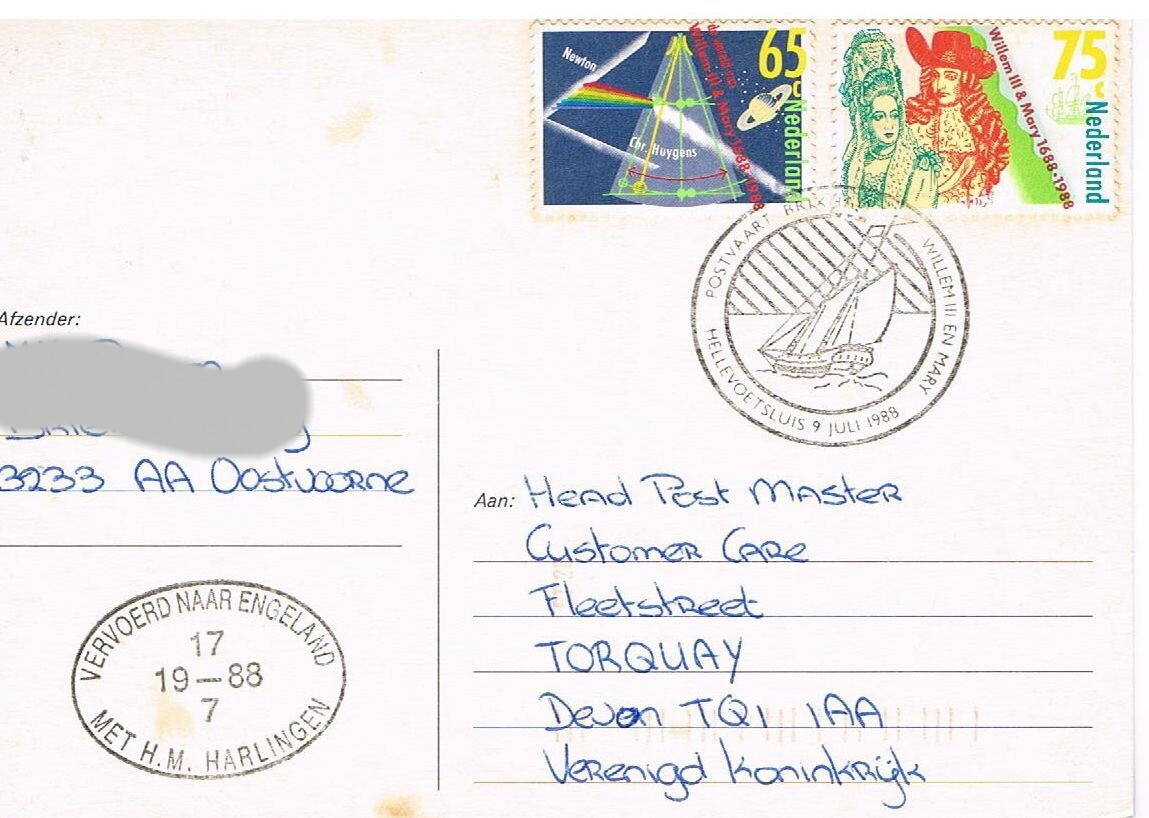 Newton
Chr. Huygens
65
c
Nederland
de wereld van
Willem III & Mary 1688-1988
75
c
Nederland
Willem III & Mary 1688-1988
POSTVAART WILLEM III EN MARY
HELLEVOETSLUIS 9 JULI 1988
Afzender:
3233 AA Oostvoorne
Aan: Head Post Master
Customer Care
Fleetstreet
TORQUAY
Devon TQ1 1AA
Verenigd Koninkrijk
VERVOERD NAAR ENGELAND
17
19-88
7
MET H.M. HARLINGEN